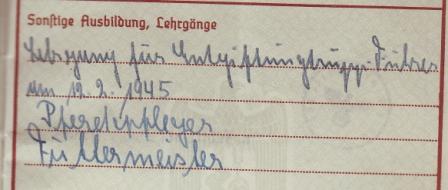 Sonstige Ausbildung, Lehrgänge
Lehrgang für Entgiftungstrupp-Führer
am 12.2.1945
Pferdepfleger
Futtermeister